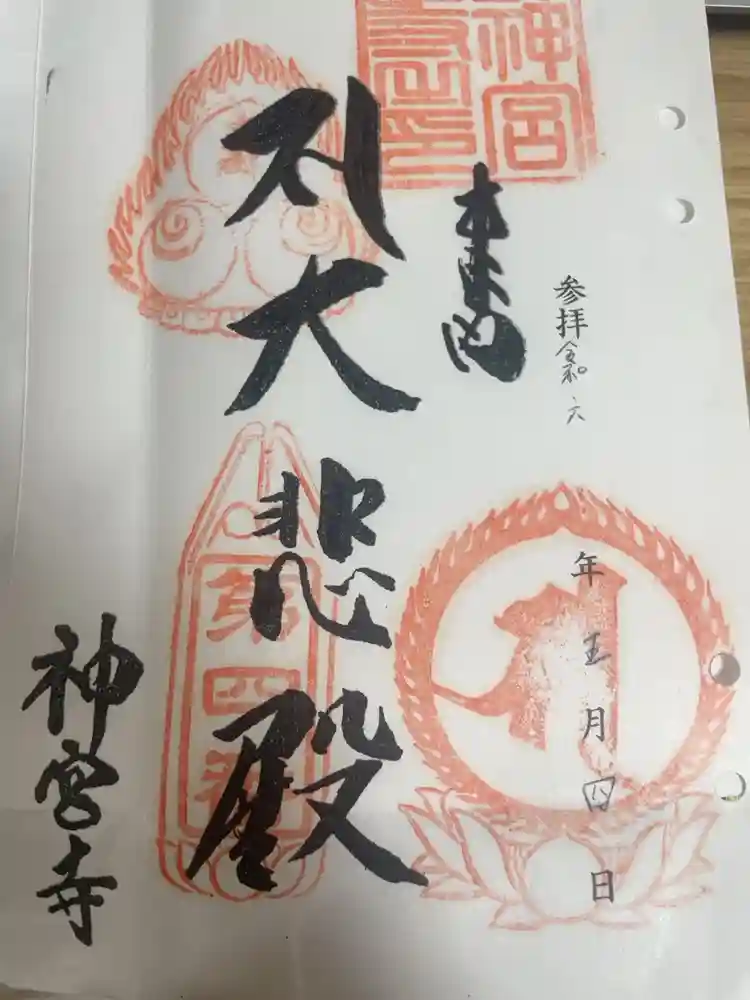 参拝 令和 六 年 五 月 四 日
奉納
大悲殿
第四番
神宮寺